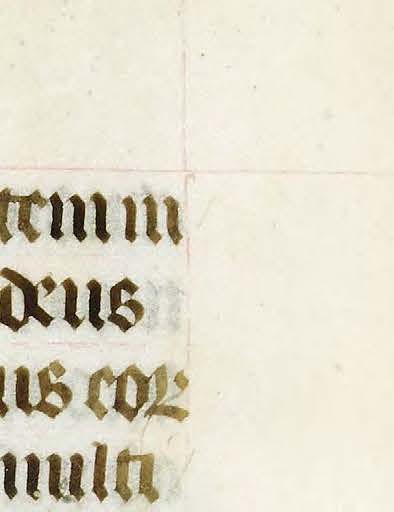 tem m
deus
us cor
multi